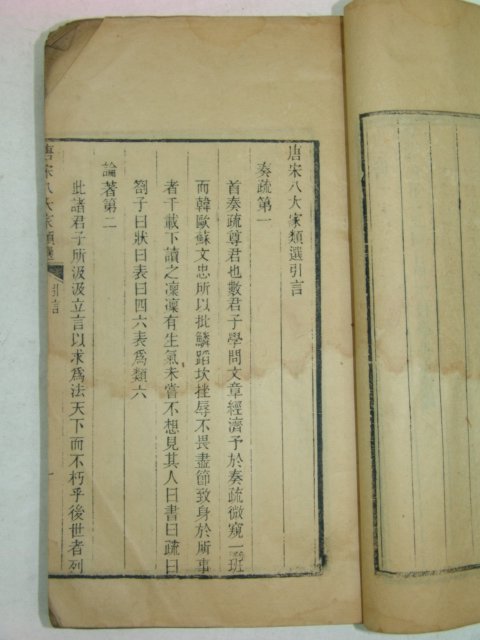 唐宋八大家類選引言
奏疏第一
首奏疏尊君也數君子學問文章經濟予於奏疏微窺一斑
而韓歐蘇文忠所以批鱗蹈坎挫辱不畏盡節致身於所事
者千載下讀之凜凜有生氣未嘗不想見其人曰書曰疏曰
劄子曰狀曰表曰四六表爲類六
論著第二
此諸君子所汲汲立言以求爲法天下而不朽乎後世者列
唐宋八大家類選
引言
一